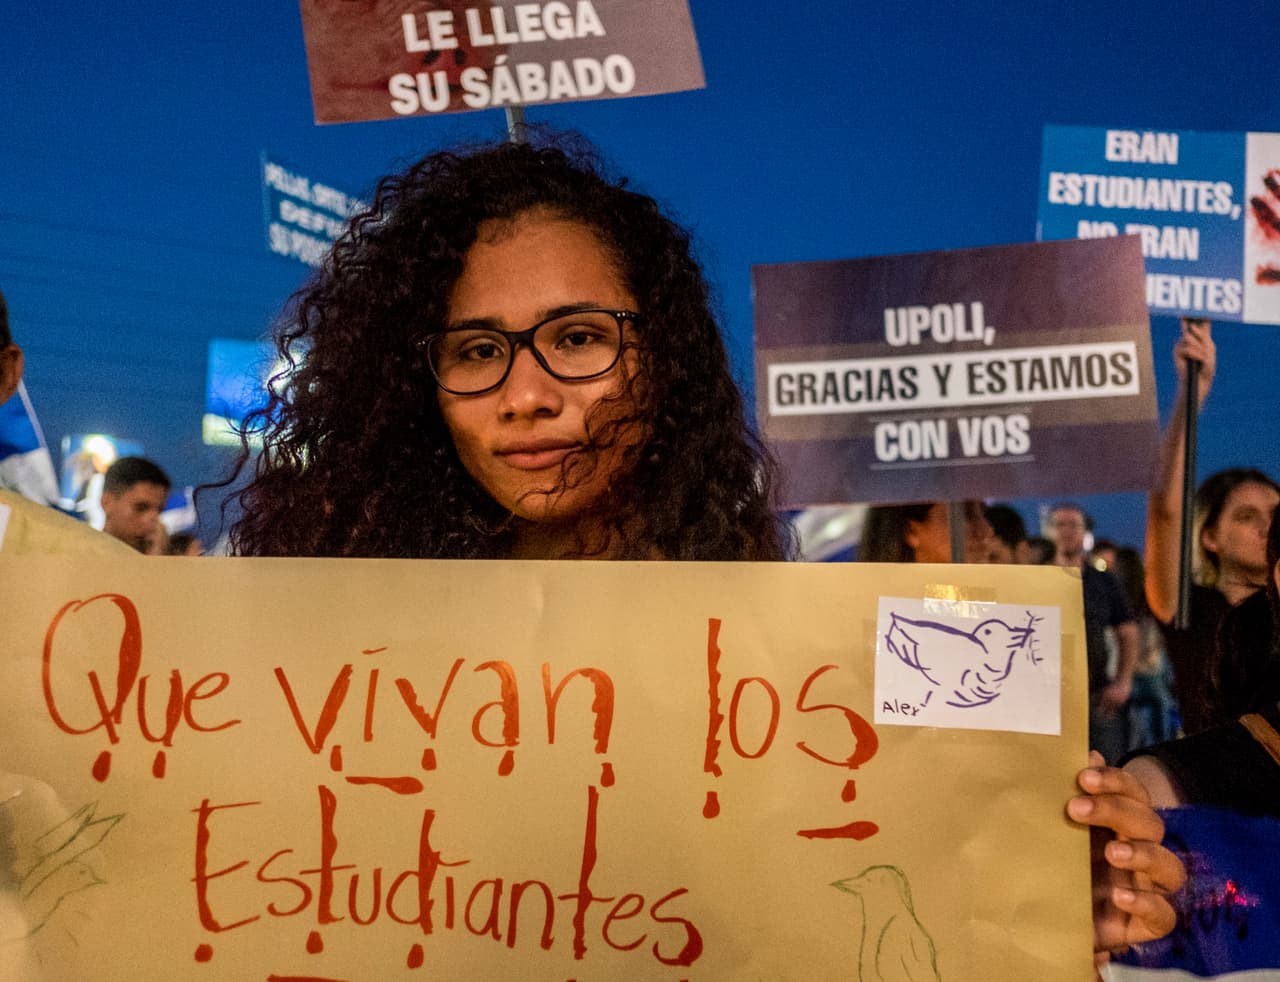 LE LLEGA
SU SÁBADO
ERAN
ESTUDIANTES,
NO ERAN
UPOLI,
GRACIAS Y ESTAMOS
CON VOS
Que vivan los
Estudiantes
Alex